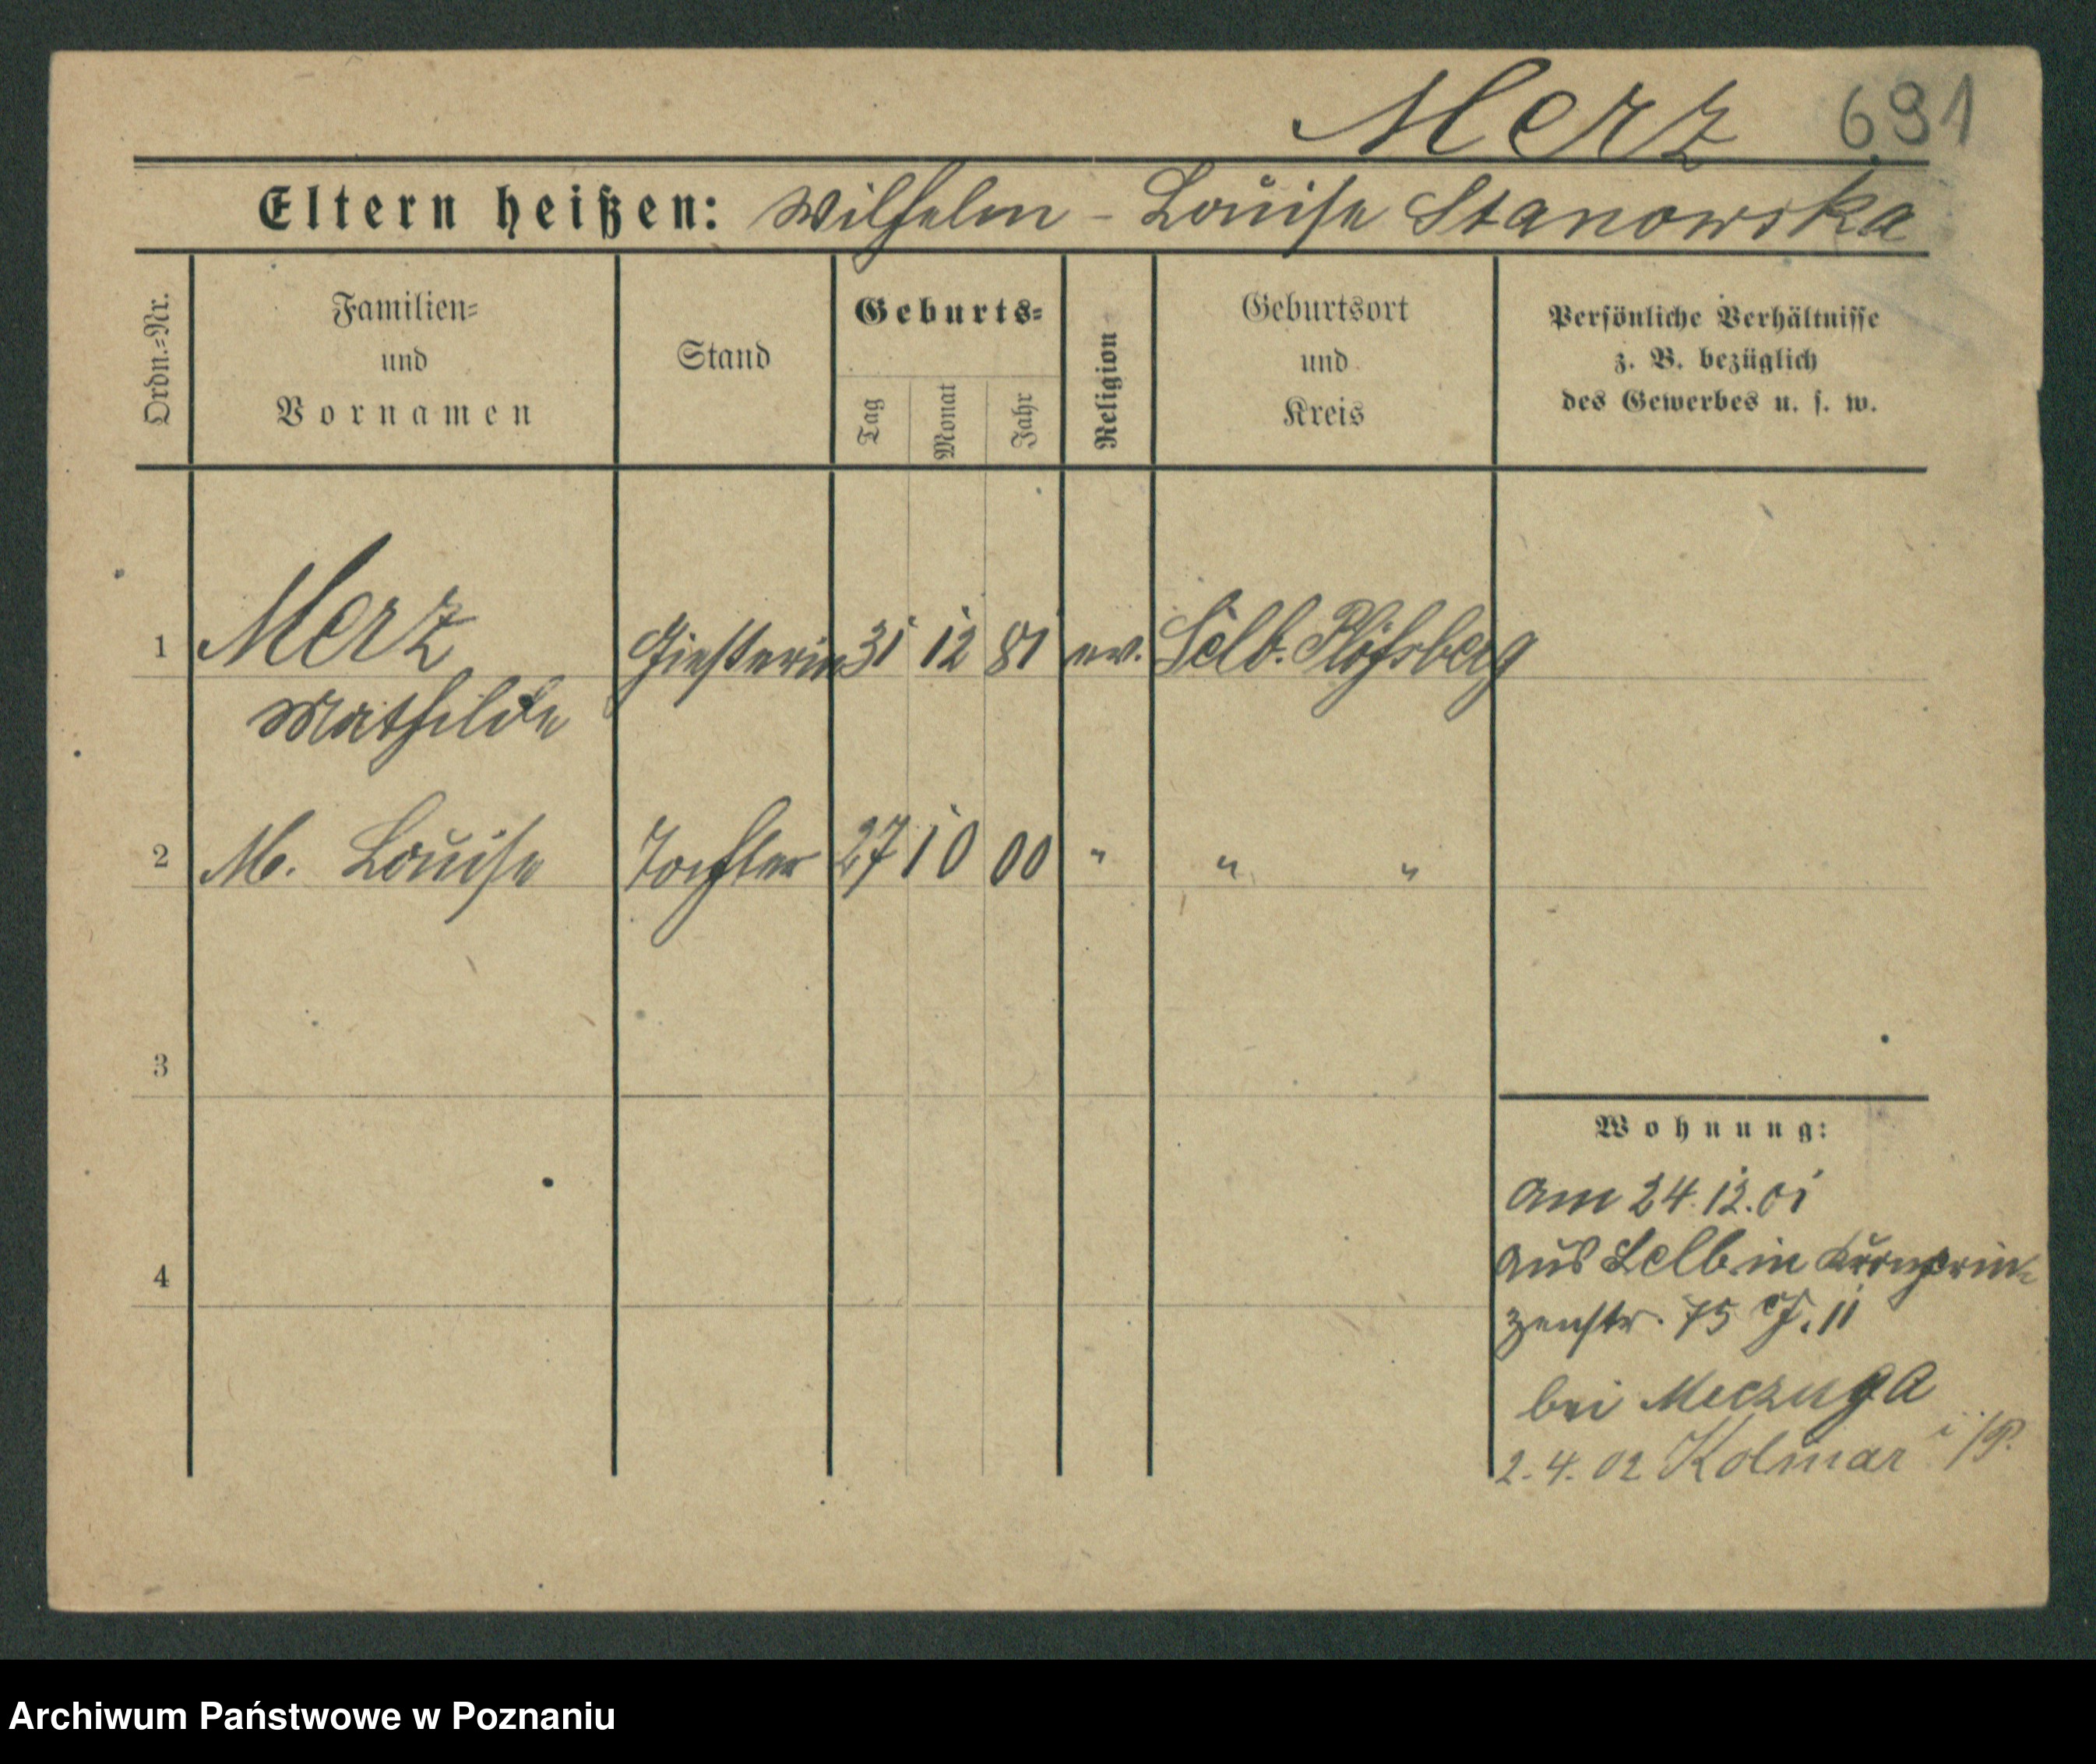 Merz 691
Eltern heißen: Wilhelm - Louise Stanowska
Ordn.=Nr.
Familien=
und
Vornamen
Stand
Geburts=
Tag
Monat
Jahr
Religion
Geburtsort
und
Kreis
Persönliche Verhältnisse
z. B. bezüglich
des Gewerbes u. s. w.
1 Merz 31 12 81 ev. Selb. Plößberg
Mathilde
2 M. Louise Tochter 27 10 00 " " "
3
4
Wohnung:
am 24.12.01
aus Selb in Kronprin-
zenstr. 75 II
bei Meczuga
2.4.02 Kolmar i/P.
Archiwum Państwowe w Poznaniu